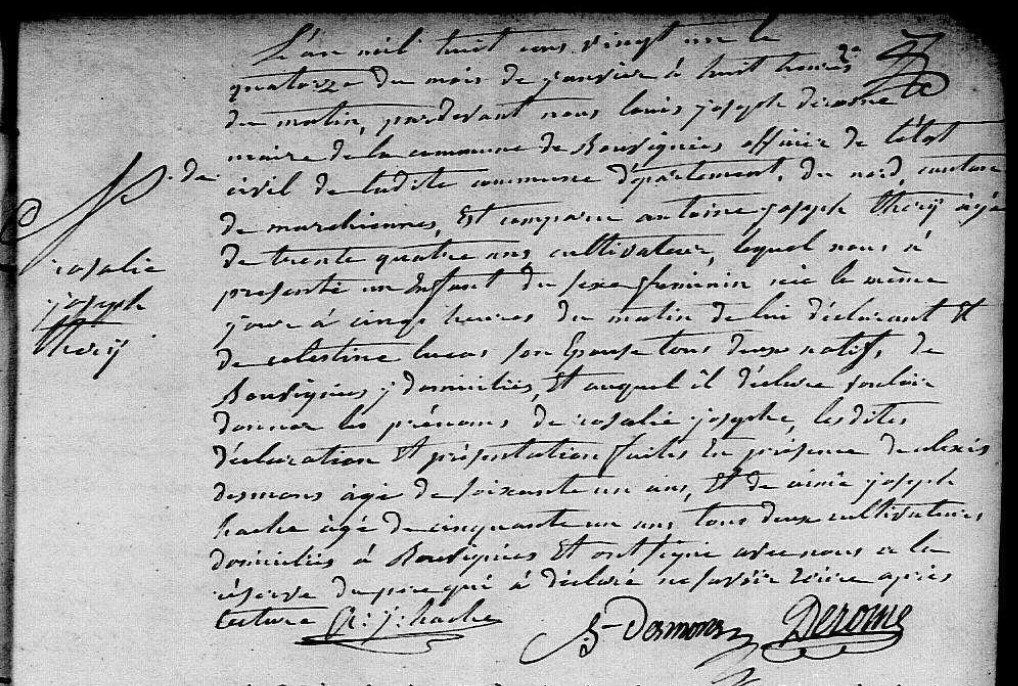 L'an mil huit cens vingt un le
quatorze du mois de janvier à huit heures
du matin, pardevant nous louis joseph derome
maire de la commune de Bouvignies officier de l'état
N. de
civil de ladite commune département, du nord, canton
de marchiennes, Est comparu antoine joseph théry agé
de trente quatre ans cultivateur, lequel nous à
rosalie
presenté un Enfant du sexe feminin née le même
joseph
jour à cinq heures du matin de lui déclarant Et
théry
de celestine lucas son Epouse tous deux natifs, de
Bouvignies y domiciliés, Et auquel il déclare vouloir
donner les prénoms de rosalie josephe, lesdites
déclaration Et présentation faites En présence de alexis
desmons âgé de soixante un ans, Et de aimé joseph
hache âgé de cinquante un ans tous deux cultivateurs
domiciliés à Bouvignies Et ont signé avec nous a la
réserve du pere qui à déclaré ne savoir Ecrire après
lecture A: j: hache
Desmons Derome